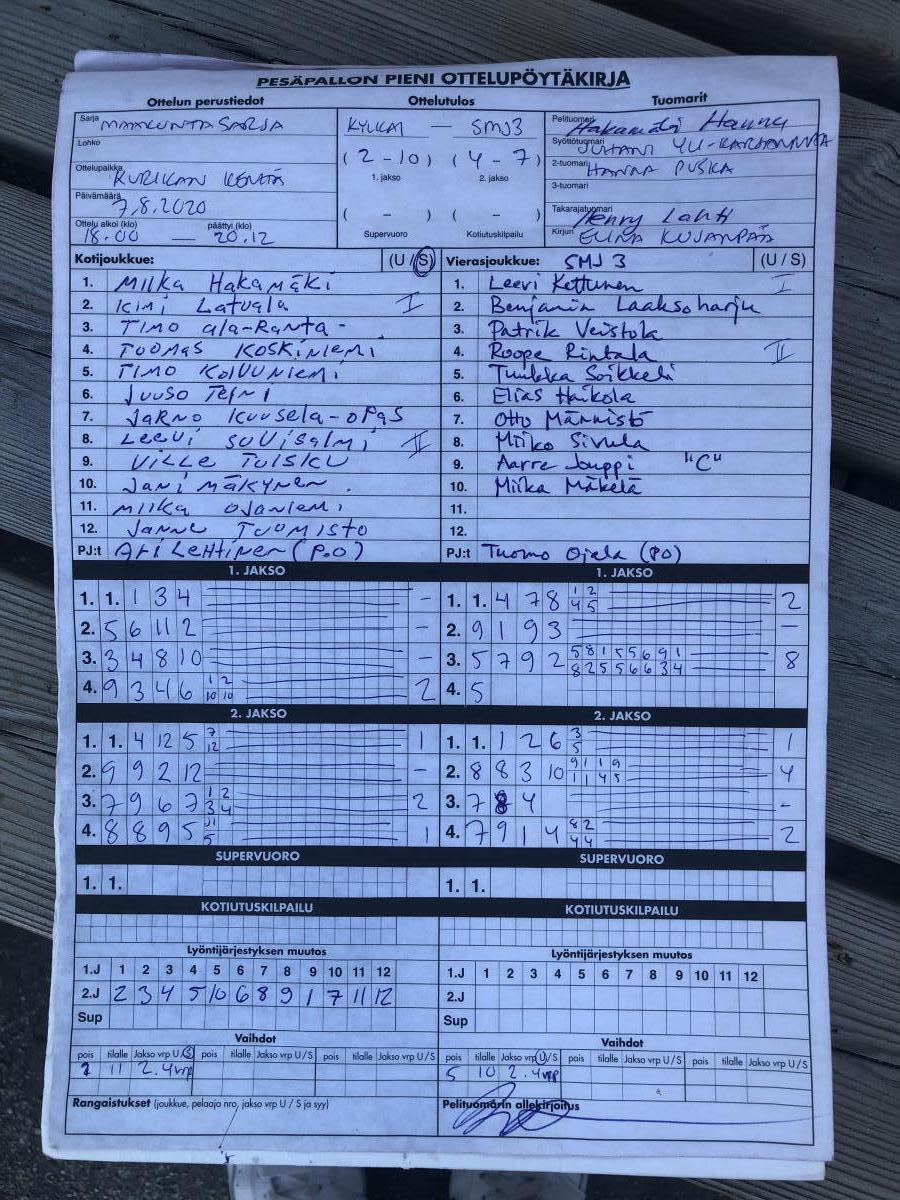 PESÄPALLON PIENI OTTELUPÖYTÄKIRJA
Ottelun perustiedot Ottelutulos Tuomarit
Sarja MAAKUNTASARJA
Lohko
Ottelupaikka KURIKAN KENTÄ
Päivämäärä 7.8.2020
Ottelu alkoi (klo) päättyi (klo)
18.00 — 20.12
KYLKAI — SMJ3
(2-10) (4-7)
1. jakso 2. jakso
( - ) ( - )
Supervuoro Kotiutuskilpailu
Pelituomari Hakamäki Hannu
Syöttötuomari JUHANI
2-tuomari HANNA PUSKA
3-tuomari
Takarajatuomari Henry Lahti
Kirjuri ELINA KUJANPÄÄ
Kotijoukkue: (U / S)
1. Miika Hakamäki
2. Kimi Latvala I
3. Timo ala-Ranta
4. TUOMAS KOSKINIEMI
5. TIMO KOIVUNIEMI
6. Juuso Teini
7. Jarno Kuusela-opas
8. Leevi Suvisalmi II
9. Ville Tuisku
10. Jani Mäkynen
11. Miika Ojaniemi
12. Janne Tuomisto
PJ:t Ari Lehtinen (P.O)
Vierasjoukkue: SMJ 3 (U / S)
1. Leevi Kettunen I
2. Benjamin Laaksoharju
3. Patrik Veistola
4. Roope Rintala II
5. Tuukka Soikkeli
6. Elias Haikola
7. Otto Männistö
8. Miiko Sivula
9. Aarre Jouppi "C"
10. Miika Mäkelä
11.
12.
PJ:t Tuomo Ojala (PO)
1. JAKSO
1. 1. 1 3 4 -
2. 5 6 11 2 -
3. 3 4 8 10 -
4. 9 3 4 6 1 2 2
10 10
2. JAKSO
1. 1. 4 12 5 7 1
12
2. 9 9 2 12 -
3. 7 9 6 7 1 2 2
3 4
4. 8 8 9 5 11 1
5
SUPERVUORO
1. 1.
KOTIUTUSKILPAILU
Lyöntijärjestyksen muutos
1.J 1 2 3 4 5 6 7 8 9 10 11 12
2.J 2 3 4 5 10 6 8 9 1 7 11 12
Sup
Vaihdot
pois tilalle Jakso vrp U/S pois tilalle Jakso vrp U/S pois tilalle Jakso vrp U/S
11 2. 4vrp
Rangaistukset (joukkue, pelaaja nro, jakso vrp U / S ja syy)
1. JAKSO
1. 1. 4 7 8 1 2 2
4 5
2. 9 1 9 3 -
3. 5 7 9 2 5 8 1 5 5 6 9 1 8
8 2 5 5 6 6 3 4
4. 5
2. JAKSO
1. 1. 1 2 6 3 1
5
2. 8 8 3 10 9 1 1 9 4
1 1 4 5
3. 7 8 4 -
4. 7 9 1 4 8 2 2
4 4
SUPERVUORO
1. 1.
KOTIUTUSKILPAILU
Lyöntijärjestyksen muutos
1.J 1 2 3 4 5 6 7 8 9 10 11 12
2.J
Sup
Vaihdot
pois tilalle Jakso vrp U/S pois tilalle Jakso vrp U/S pois tilalle Jakso vrp U/S
5 10 2. 4vrp
Pelituomarin allekirjoitus